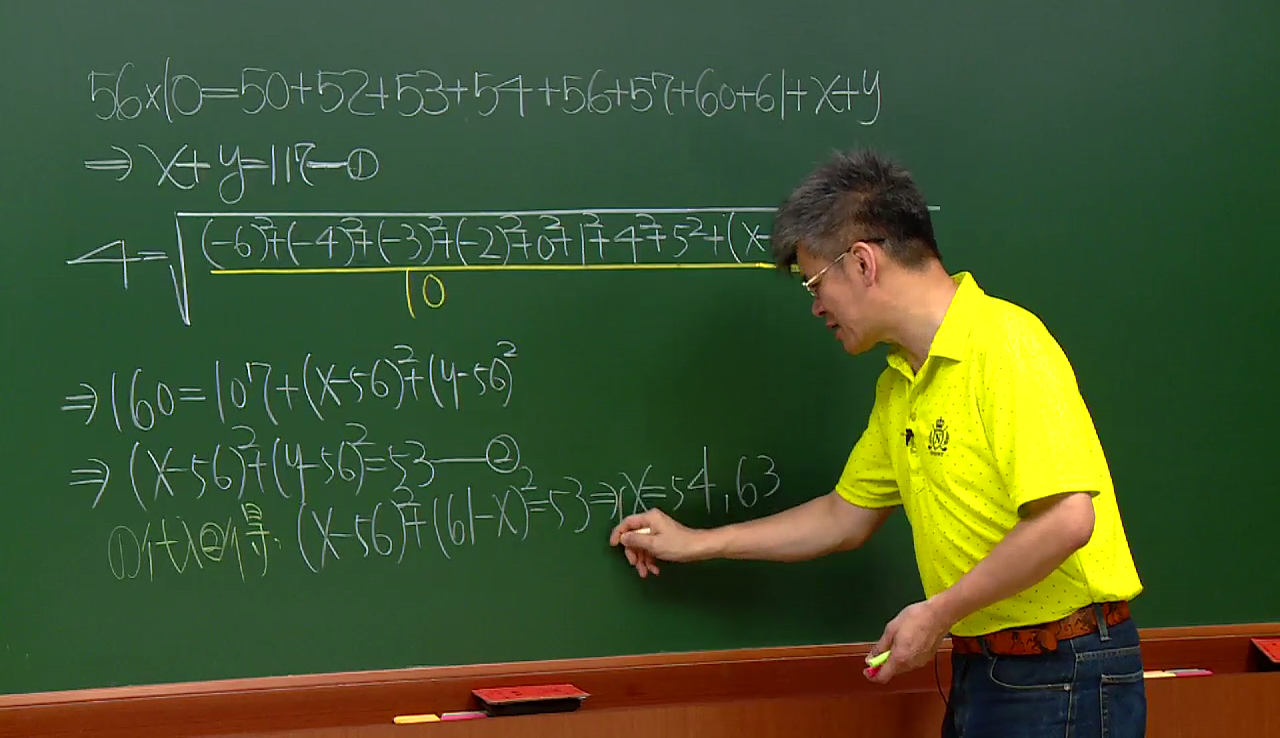 56×10=50+52+53+54+56+57+60+61+x+y
⇒ x+y=117—①
4=√((-6)²+(-4)²+(-3)²+(-2)²+0²+1²+4²+5²+(x-
10
⇒160=107+(x-56)²+(y-56)²
⇒ (x-56)²+(y-56)²=53——②
①代入②得: (x-56)²+(61-x)²=53⇒x=54,63